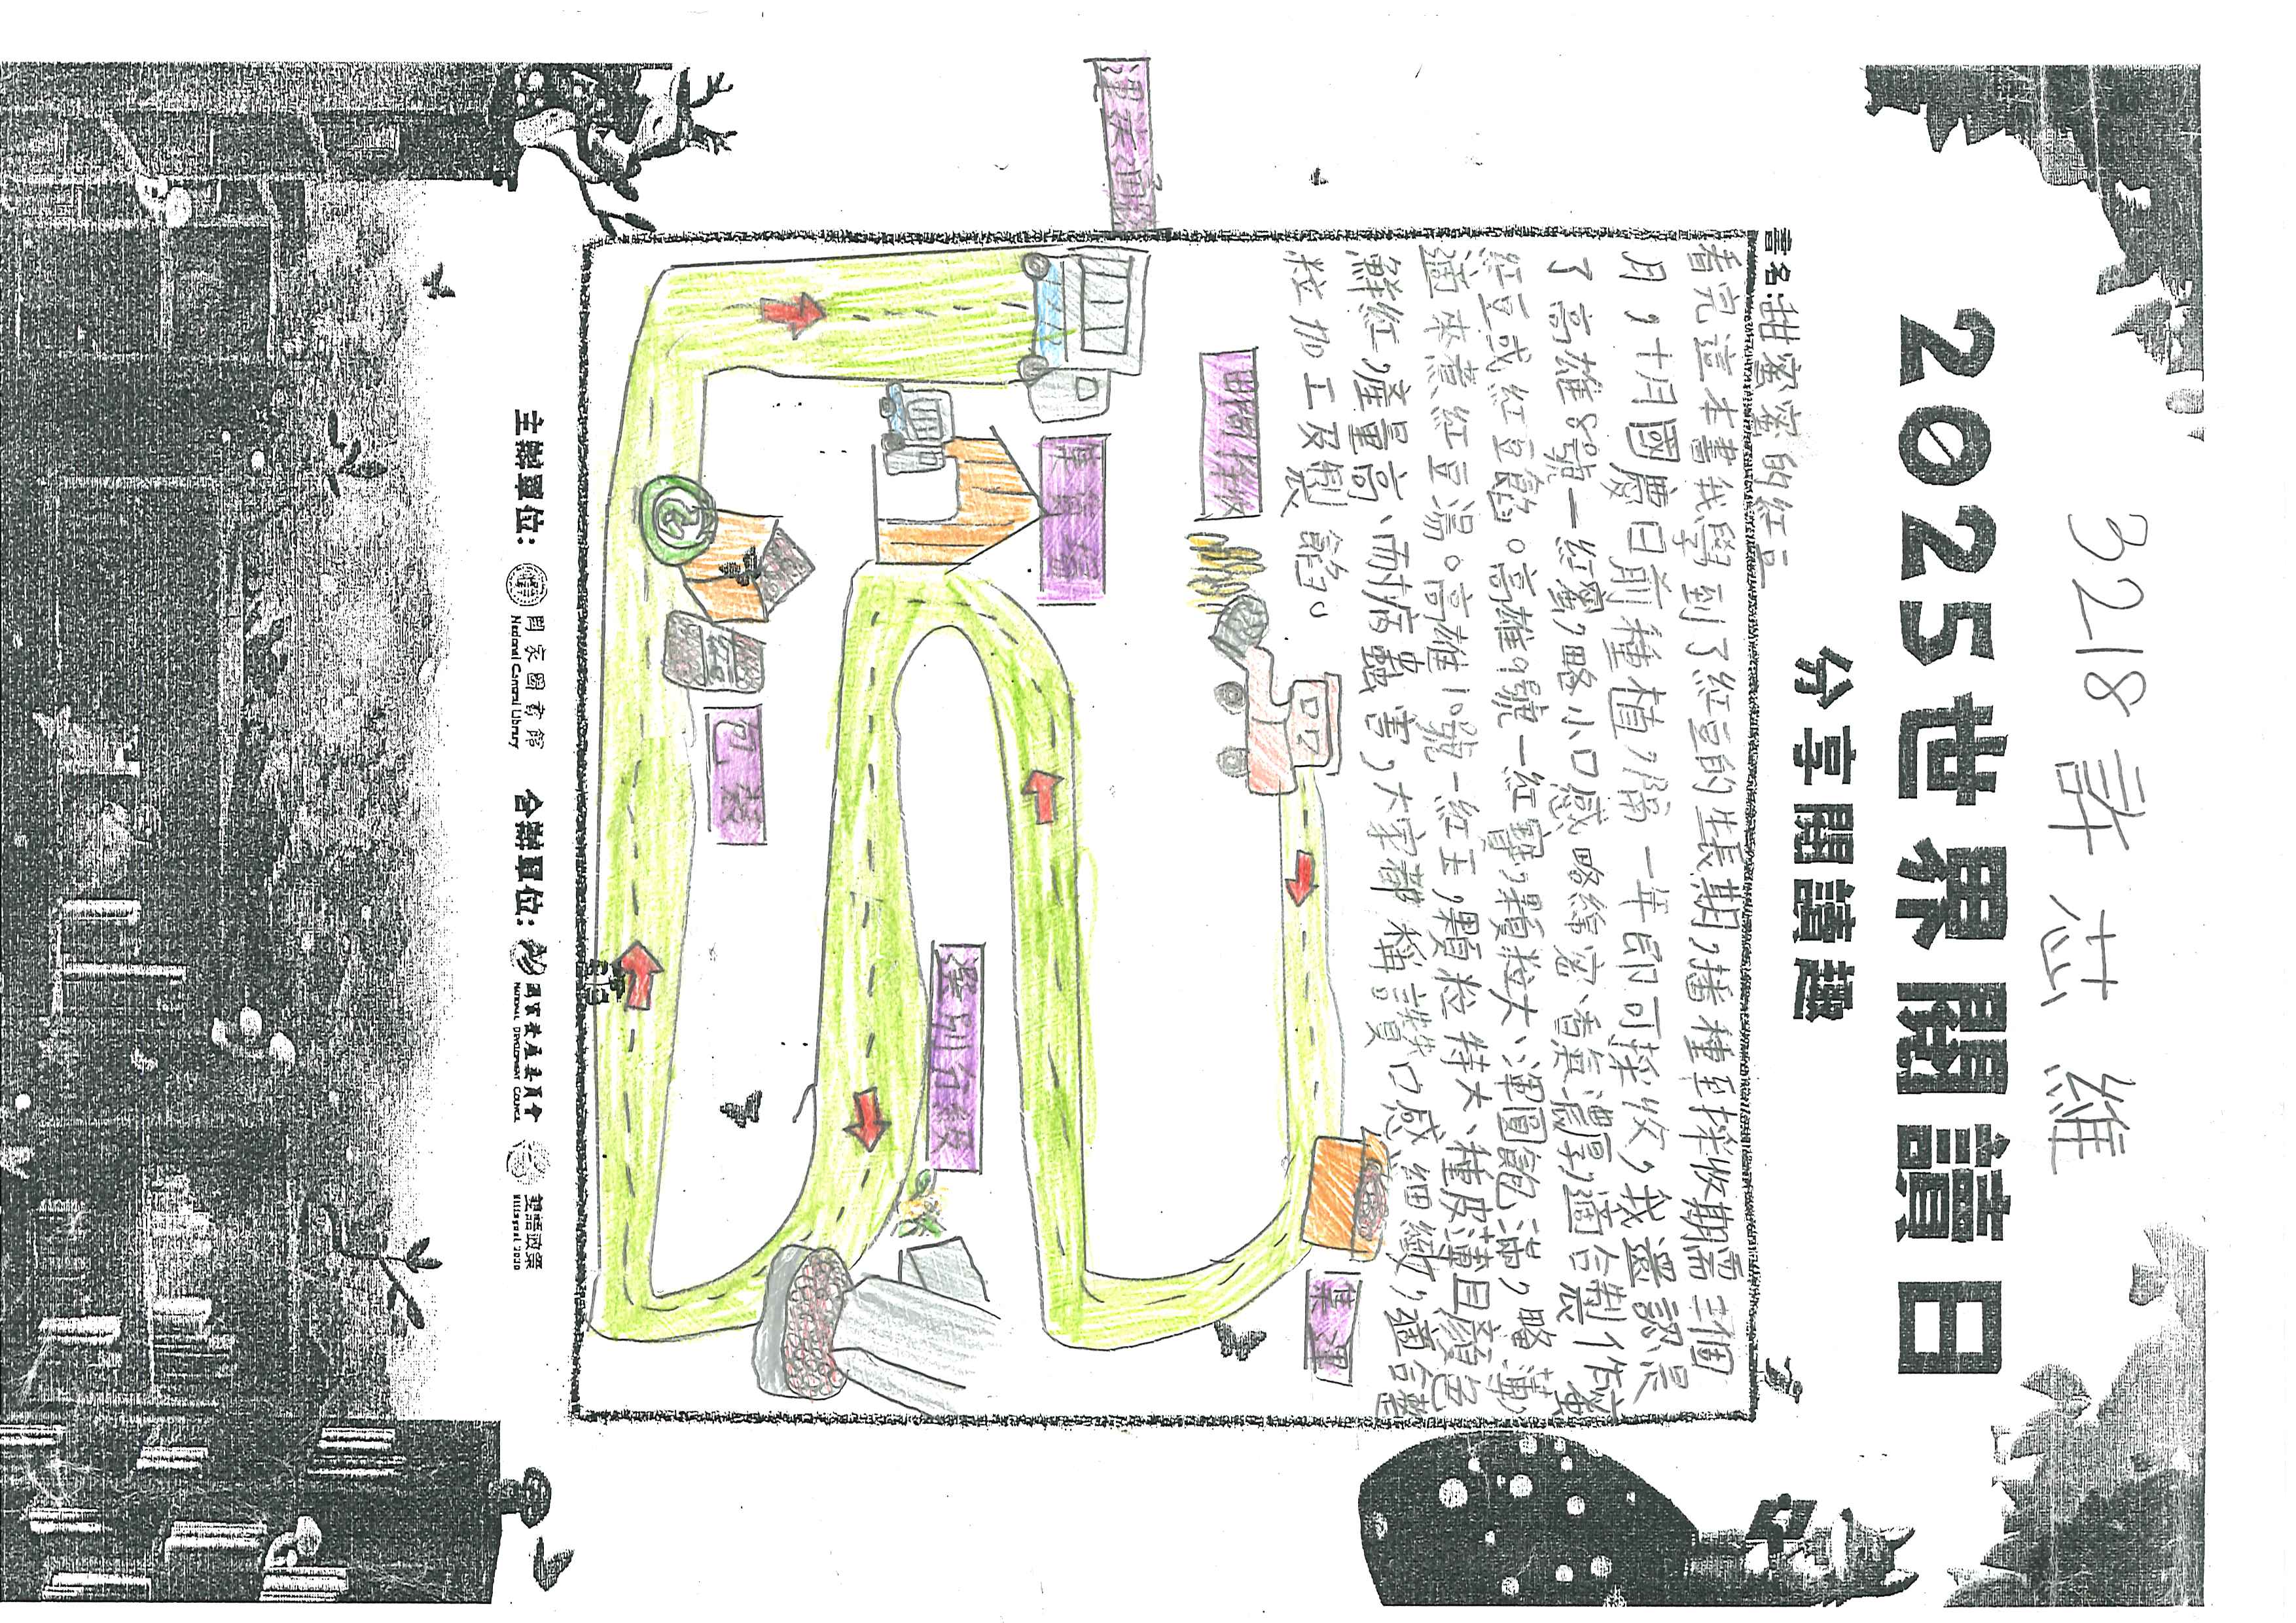 3218 許芯維
2025世界閱讀日
分享閱讀趣
書名:甜蜜蜜的紅豆
看完這本書我學到了紅豆的生長期,播種至採收期需三個
月,十月國慶日前種植,隔一年即可採收,我還認是
了高雄8號-紅蜜,略小口感略綿密香氣濃厚,適合制作蜜
紅豆或紅豆餡。高雄9號-紅寶,顆粒大、渾圓飽滿,略薄,
適來煮紅豆湯。高雄10號-紅玉,顆粒特大、種皮薄且顏色
鮮紅,產量高、而抗病蟲害,大家都稱讚口感細緻,適合整
粒加工及製成餡。
田間採收
集運
集貨場
選別分級
包裝
運送
主辦單位:
國家圖書館
National Central Library
合辦單位:
國家發展委員會
NATIONAL DEVELOPMENT COUNCIL
雙語政策
Bilingual 2030